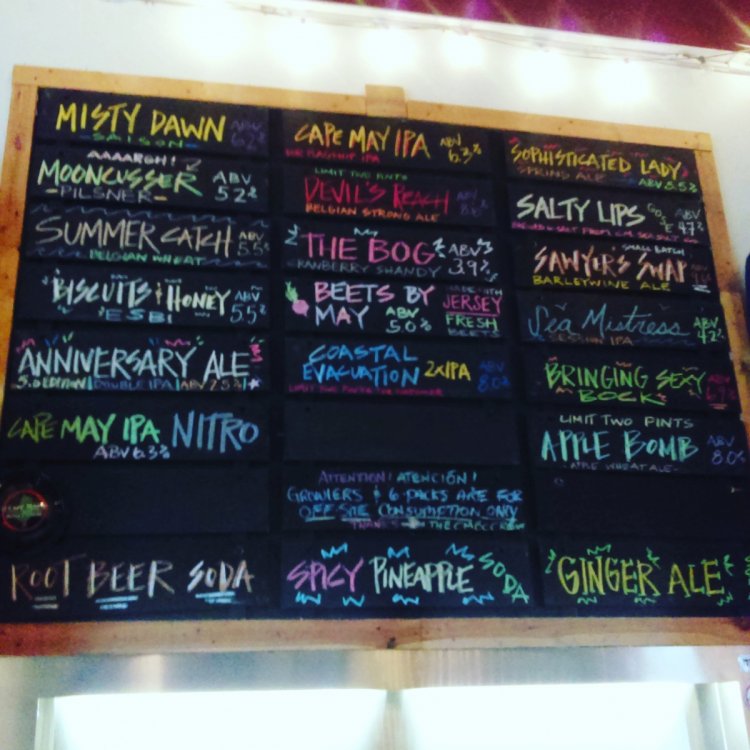 MISTY DAWN ABV 6.2%
SAISON
AAAARGH!
MOONCUSSER ABV 5.2%
PILSNER
SUMMER CATCH ABV 5.5%
BELGIAN WHEAT
BISCUITS & HONEY ABV 5.5%
ESB!
ANNIVERSARY ALE
5.0 EDITION DOUBLE IPA ABV 7.5%
CAPE MAY IPA NITRO
ABV 6.3%
ROOT BEER SODA
CAPE MAY IPA ABV 6.3%
OUR FLAGSHIP IPA
LIMIT TWO PINTS
DEVIL'S REACH ABV
BELGIAN STRONG ALE
THE BOG ABV 3.9%
CRANBERRY SHANDY
BEETS BY MAY ABV 5.0%
MADE WITH JERSEY FRESH BEETS
COASTAL EVACUATION 2XIPA ABV 8.0%
LIMIT TWO PINTS PER CUSTOMER
ATTENTION! ATENCIÓN!
GROWLERS & 6-PACKS ARE FOR
OFF-SITE CONSUMPTION ONLY
THANKS THE CMBC CREW
SPICY PINEAPPLE SODA
SOPHISTICATED LADY
SPRING ALE ABV 5.5%
SALTY LIPS GOSE ABV 4.7%
SALT FROM
SMALL BATCH
SAWYERS SWAP ABV
BARLEYWINE ALE
SEA MISTRESS ABV 4.2%
SESSION IPA
BRINGING SEXY BOCK ABV
LIMIT TWO PINTS
APPLE BOMB ABV 8.0%
APPLE WHEAT ALE
GINGER ALE